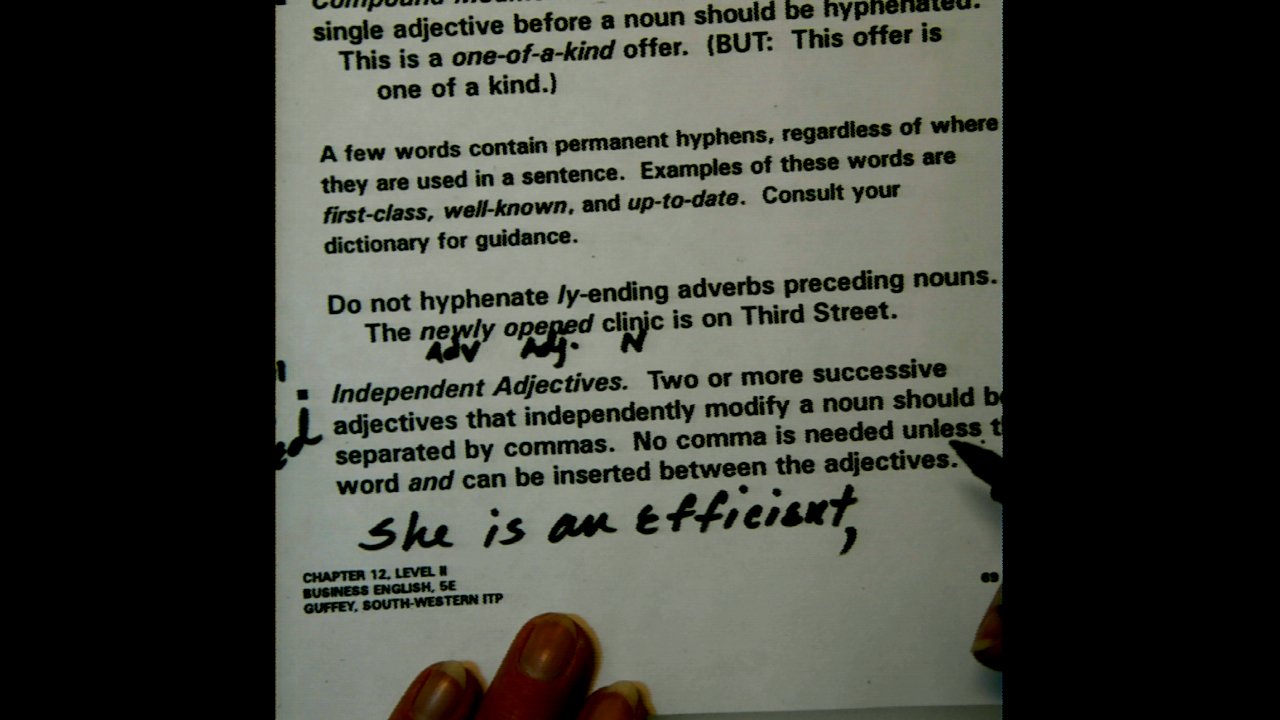 Compound
single adjective before a noun should be hyphenated.
This is a one-of-a-kind offer. (BUT: This offer is
one of a kind.)
A few words contain permanent hyphens, regardless of where
they are used in a sentence. Examples of these words are
first-class, well-known, and up-to-date. Consult your
dictionary for guidance.
Do not hyphenate ly-ending adverbs preceding nouns.
The newly opened clinic is on Third Street.
Adv Adj. N
▪ Independent Adjectives. Two or more successive
adjectives that independently modify a noun should be
separated by commas. No comma is needed unless t
word and can be inserted between the adjectives.
She is an Efficient,
CHAPTER 12, LEVEL II
BUSINESS ENGLISH, 5E
GUFFEY, SOUTH-WESTERN ITP
69